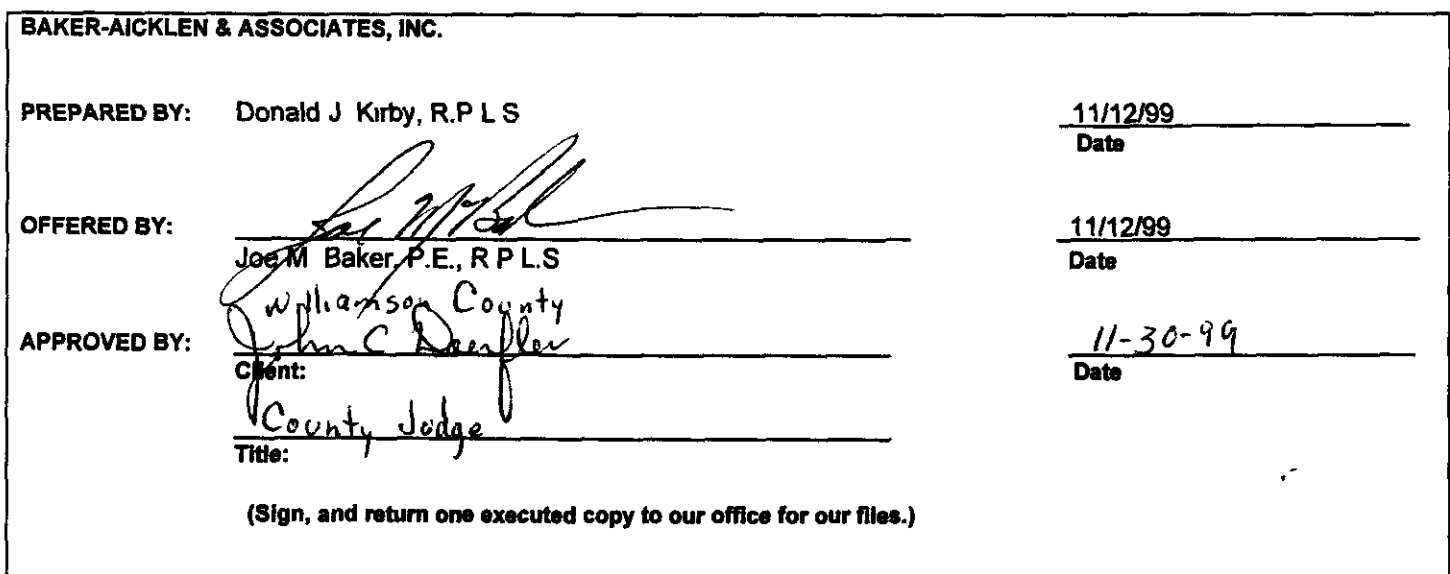 BAKER-AICKLEN & ASSOCIATES, INC.
PREPARED BY: Donald J Kirby, R.P L S 11/12/99
Date
OFFERED BY: Joe M Baker 11/12/99
Joe M Baker, P.E., R P L.S Date
Williamson County
APPROVED BY: John C Doerfler 11-30-99
Client: Date
County Judge
Title:
(Sign, and return one executed copy to our office for our files.)